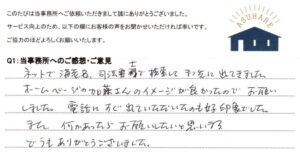 このたびは当事務所へご依頼いただきまして誠にありがとうございました。
サービス向上のため、以下の欄にお客様の声をお聞かせいただければ幸いです。
ご協力のほどよろしくお願いいたします。
ASUHARE
Q1:当事務所へのご感想・ご意見
ネットで海老名、司法書士で検索して 出てきました。
ホームページの加藤さんのイメージが良かったので お願い
しました。電話にすぐ出ていただいたのも好印象でした。
また 何かあったら お願いしたいと思います
どうもありがとうございました。